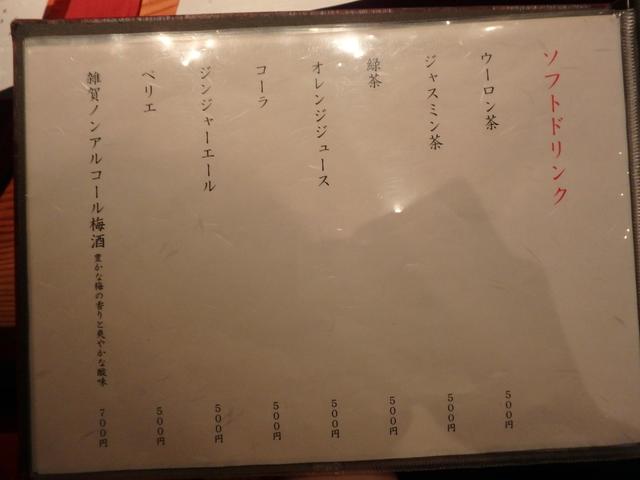 ソフトドリンク
ウーロン茶 500円
ジャスミン茶 500円
緑茶 500円
オレンジジュース 500円
コーラ 500円
ジンジャーエール 500円
ペリエ 500円
雑賀ノンアルコール梅酒 豊かな梅の香りと爽やかな酸味 700円